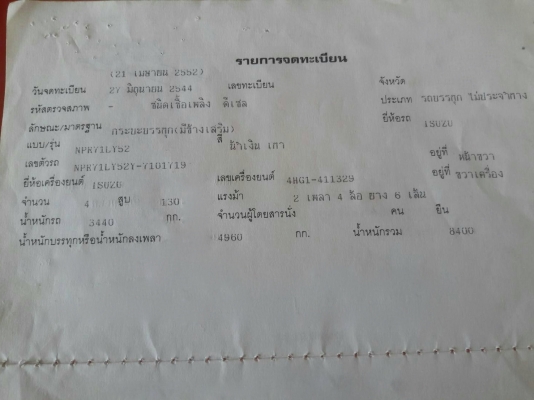 รายการจดทะเบียน
(21 เมษายน 2552)
วันจดทะเบียน 27 มิถุนายน 2544 เลขทะเบียน จังหวัด
รหัสตรวจสภาพ - ชนิดเชื้อเพลิง ดีเซล ประเภท รถบรรทุก ไม่ประจำทาง
ลักษณะ/มาตรฐาน กระบะบรรทุก(มีข้างเสริม) ยี่ห้อรถ ISUZU
แบบ/รุ่น NPR71LY52 สี น้ำเงิน เทา
เลขตัวรถ NPR71LY52Y-7101719 อยู่ที่ หน้าขวา
ยี่ห้อเครื่องยนต์ ISUZU เลขเครื่องยนต์ 4HG1-411329 อยู่ที่ ขวาเครื่อง
จำนวน 4 สูบ 130 แรงม้า 2 เพลา 4 ล้อ ยาง 6 เส้น
น้ำหนักรถ 3440 กก. จำนวนผู้โดยสารนั่ง คน ยืน
น้ำหนักบรรทุกหรือน้ำหนักลงเพลา 4960 กก. น้ำหนักรวม 8400